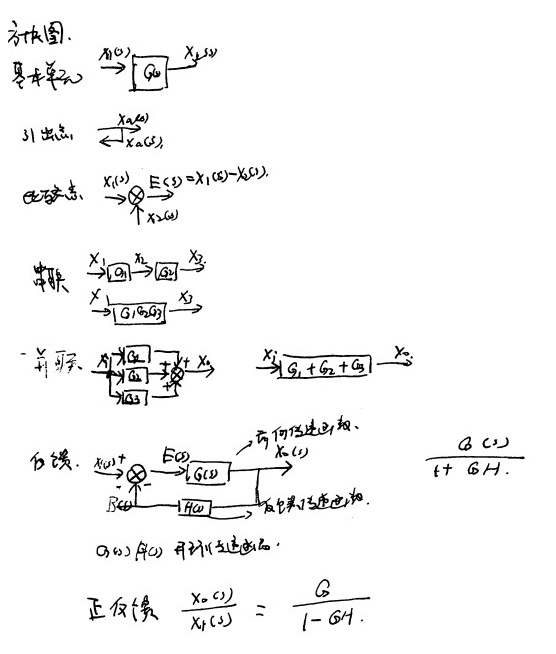 方块图.
基本单元 X₁(s) G(s) X₂(s)
引出点 Xa(s)
Xa(s).
比较点 X₁(s) E(s)=X₁(s)-X₂(s).
X₂(s)
串联 X₁ G₁ X₂ G₂ X₃
X₁ G₁G₂G₃ X₃
并联. Xi G₁ + X₀ Xi G₁+G₂+G₃ X₀
G₂ +
G₃ +
反馈. Xi(s) + E(s) G(s) 前向传递函数. X₀(s) G(s)/1+GH.
- B(s) H(s) 反馈传递函数.
G(s) H(s) 开环传递函.
正反馈 X₀(s)/Xi(s) = G/1-GH.